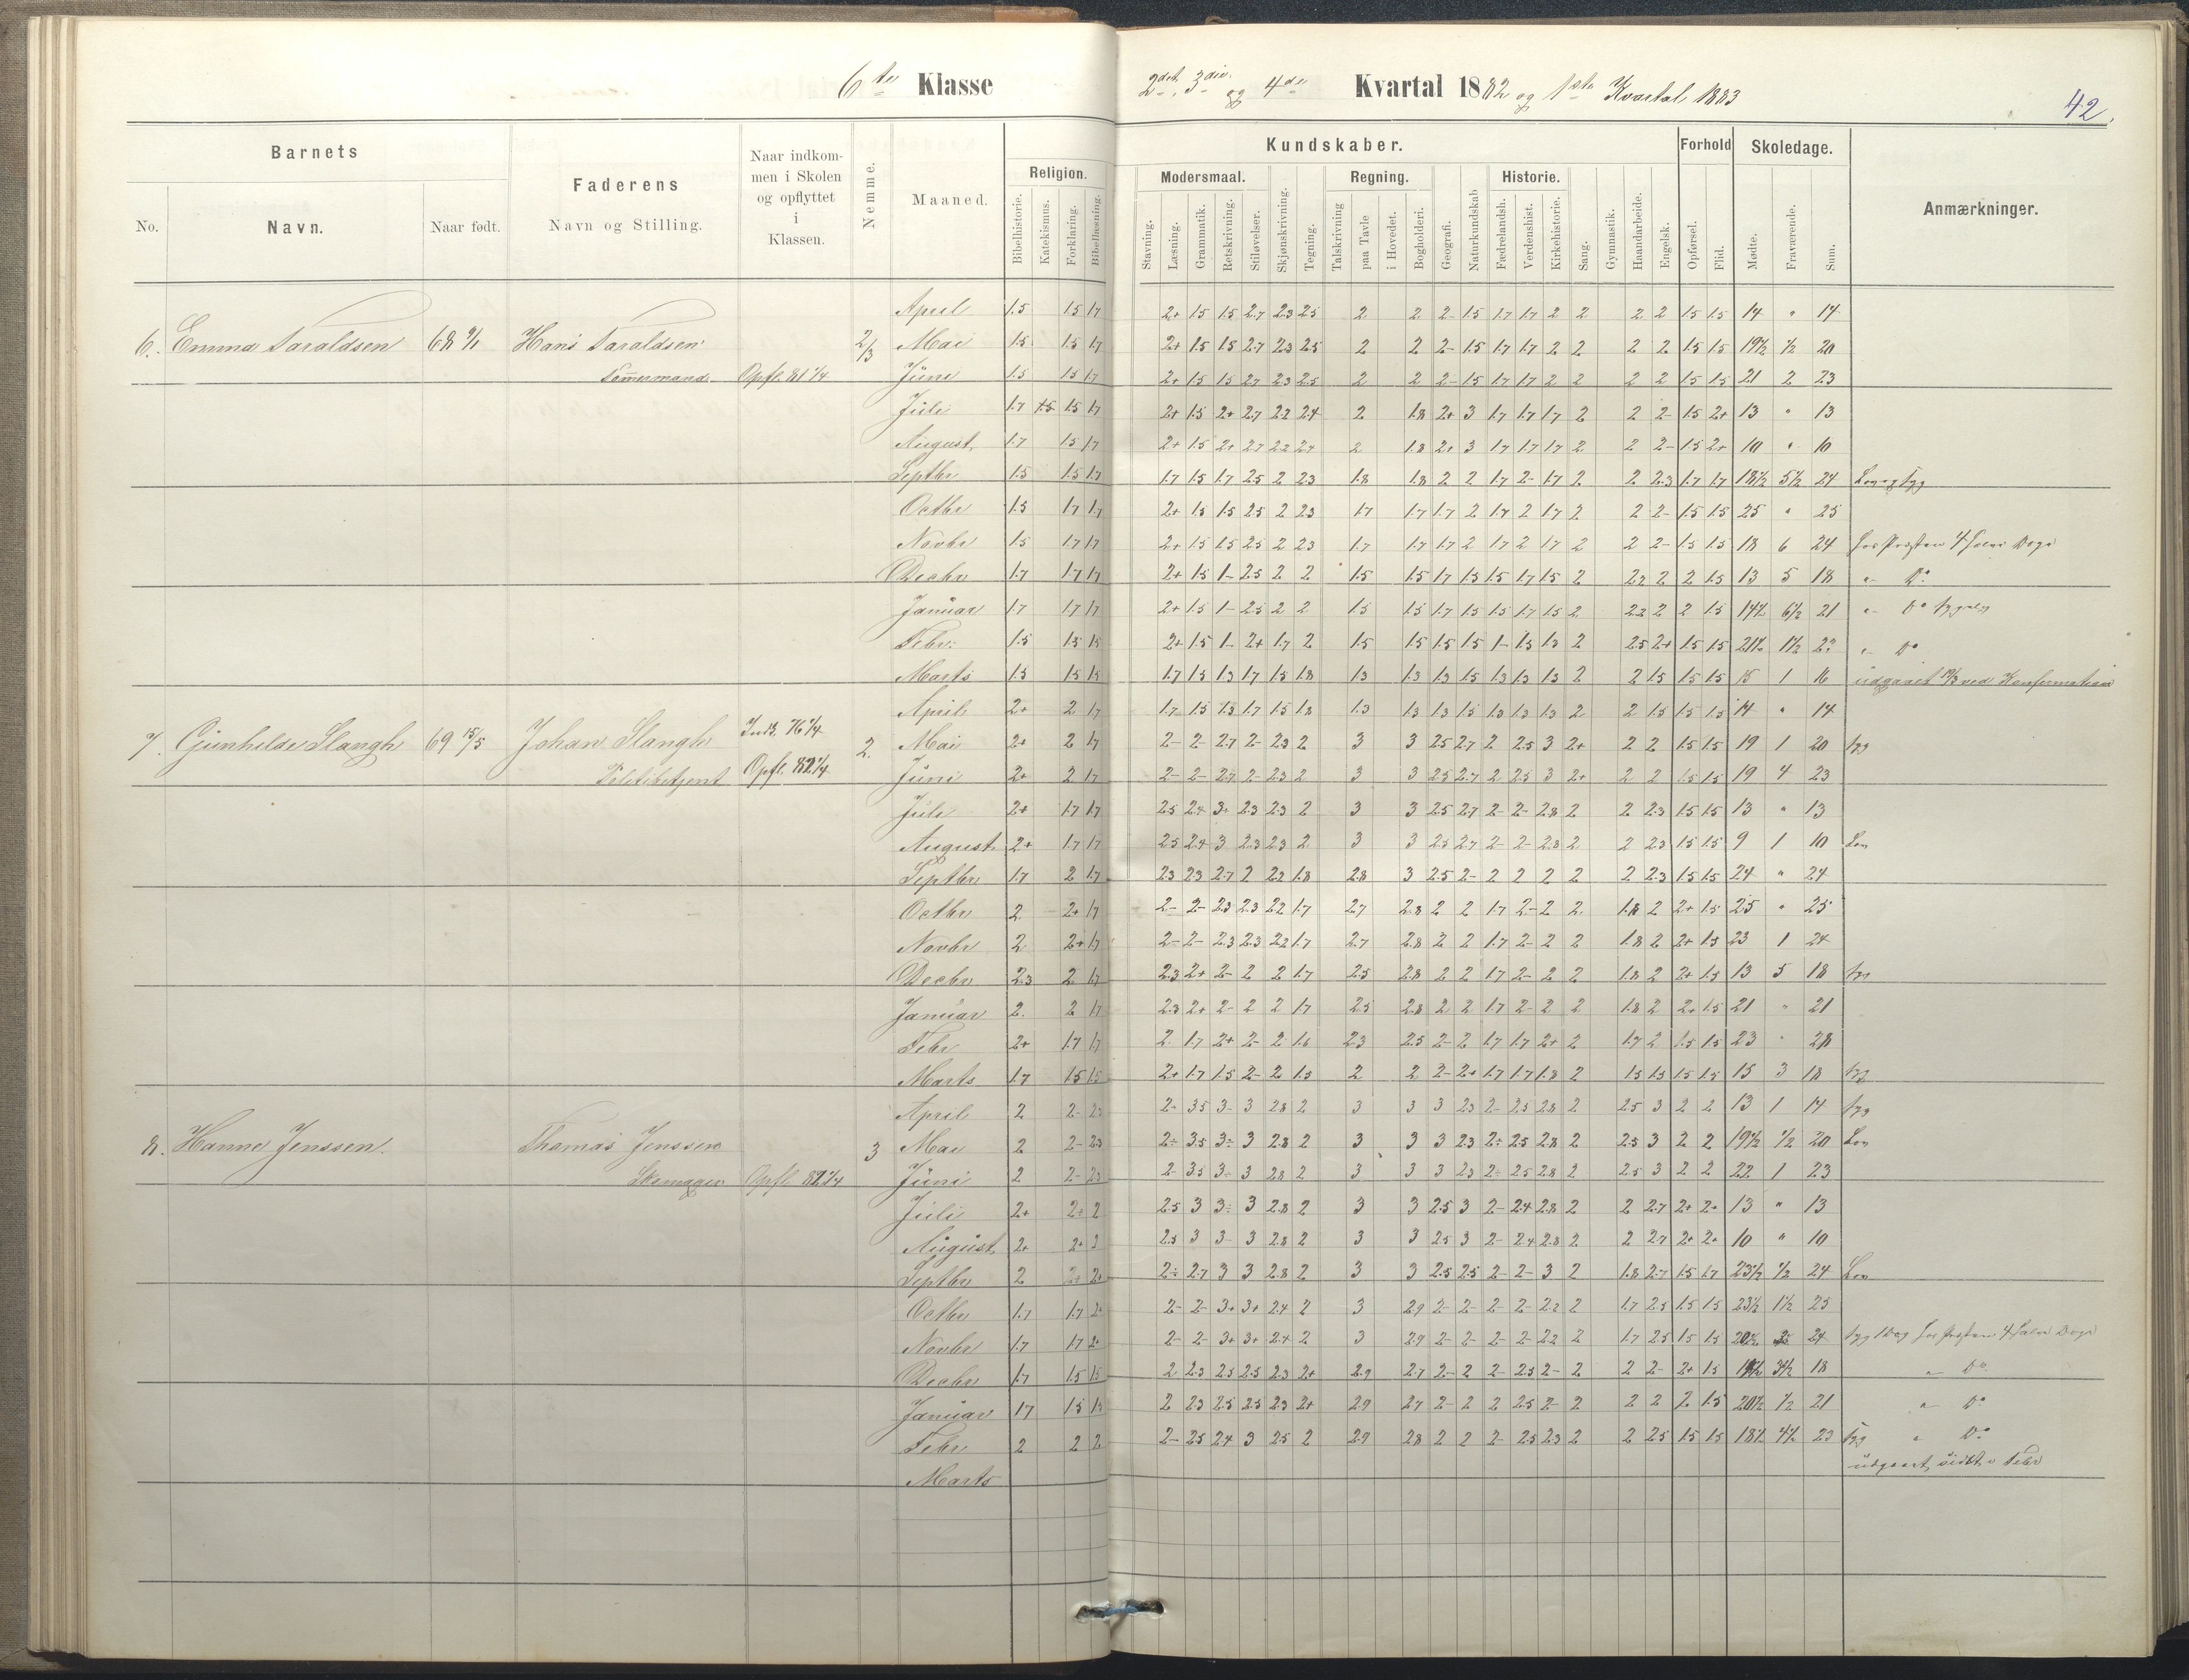 6te Klasse
2det, 3die og 4de Kvartal 1882 og 1ste Kvartal 1883
42.
Barnets
No.
Navn.
Naar født.
Faderens
Navn og Stilling.
Naar indkom-
men i Skolen
og opflyttet
i
Klassen.
Nemme.
Maaned.
Religion.
Bibelhistorie.
Katekismus.
Forklaring.
Bibellæsning.
Kundskaber.
Stavning.
Modersmaal.
Læsning.
Grammatik.
Retskrivning.
Stiløvelser.
Skjønskrivning.
Tegning.
Regning.
Talskrivning
paa Tavle
i Hovedet.
Bogholderi.
Geografi.
Naturkundskab
Historie.
Fædrelandsh.
Verdenshist.
Kirkehistorie.
Sang.
Gymnastik.
Haandarbeide.
Engelsk.
Forhold
Opførsel.
Flid.
Skoledage.
Mødte.
Fraværende.
Sum.
Anmærkninger.
April 1.5 1.5 1.7 2+ 1.5 1.5 2.7 2.3 2.5 2 2 2- 1.5 1.7 1.7 2 2 2 2 1.5 1.5 14 " 14
6. Emma Taraldsen 68 9/1 Hans Taraldsen 2/3 Mai 1.5 1.5 1.7 2+ 1.5 1.5 2.7 2.3 2.5 2 2 2- 1.5 1.7 1.7 2 2 2 2 1.5 1.5 19½ ½ 20
Tømmermand Opfl. 81 1/4 Juni 1.5 1.5 1.7 2+ 1.5 1.5 2.7 2.3 2.5 2 2 2- 1.5 1.7 1.7 2 2 2 2 1.5 1.5 21 2 23
Juli 1.7 1.5 1.5 1.7 2+ 1.5 2+ 2.7 2.2 2.4 2 1.8 2+ 3 1.7 1.7 1.7 2 2 2- 1.5 2+ 13 " 13
August 1.7 1.5 1.7 2+ 1.5 2+ 2.7 2.2 2.4 2 1.8 2+ 3 1.7 1.7 1.7 2 2 2- 1.5 2+ 10 " 10
Septbr 1.5 1.5 1.7 1.7 1.5 1.7 2.5 2 2.3 1.8 1.8 2 2 1.7 2- 1.7 2 2 2.3 1.7 1.7 18½ 5½ 24 Lov og syg
Octbr 1.5 1.7 1.7 2+ 1.5 1.5 2.5 2 2.3 1.7 1.7 1.7 2 1.7 2 1.7 2 2 2- 1.5 1.5 25 " 25
Novbr 1.5 1.7 1.7 2+ 1.5 1.5 2.5 2 2.3 1.7 1.7 1.7 2 1.7 2 1.7 2 2 2- 1.5 1.5 18 6 24 hos Præsten 4 halve Dage
Decbr 1.7 1.7 1.7 2+ 1.5 1- 2.5 2 2 1.5 1.5 1.7 1.5 1.5 1.7 1.5 2 2.2 2 2 1.5 13 5 18 " Do
Januar 1.7 1.7 1.7 2+ 1.5 1- 2.5 2 2 1.5 1.5 1.7 1.5 1.5 1.7 1.5 2 2.2 2 2 1.5 14½ 6½ 21 " Do
Febr. 1.5 1.5 1.5 2+ 1.5 1- 2+ 1.7 2 1.5 1.5 1.5 1.5 1- 1.5 1.3 2 2.5 2+ 1.5 1.5 21½ 1½ " Do
Marts 1.5 1.5 1.5 1.7 1.5 1.3 1.7 1.5 1.8 1.3 1.3 1.3 1.5 1.3 1.3 1.3 2 2 1.5 1.5 1.5 15 1 16 udgaaet ved Konfirmation
April 2+ 2 1.7 1.7 1.5 1.3 1.7 1.5 1.8 1.3 1.3 1.3 1.5 1.3 1.3 1.3 2 2 1.5 1.5 1.5 14 " 14
7. Gunhilde Slangh 69 15/5 Johan Slangh Indk. 76 1/4 2. Mai 2+ 2 1.7 2- 2- 2.7 2- 2.3 2 3 3 2.5 2.7 2 2.5 3 2+ 2 2 1.5 1.5 19 1 20 syg
Politibetjent Opfl. 82 1/4 Juni 2+ 2 1.7 2- 2- 2.7 2- 2.3 2 3 3 2.5 2.7 2 2.5 3 2+ 2 2 1.5 1.5 19 4 23
Juli 2+ 1.7 1.7 2.5 2.4 3+ 2.3 2.3 2 3 3 2.5 2.7 2- 2- 2.8 2 2 2.3 1.5 1.5 13 " 13
August 2+ 1.7 1.7 2.5 2.4 3 2.3 2.3 2 3 3 2.5 2.7 2- 2- 2.8 2 2 2.3 1.5 1.5 9 1 10 Lov
Septbr 1.7 2 1.7 2.3 2.3 2.7 2 2.2 1.8 2.8 3 2.5 2- 2 2 2 2 2 2.3 1.5 1.5 24 " 24
Octbr 2 2+ 1.7 2- 2- 2.3 2.3 2.2 1.7 2.7 2.8 2 2 1.7 2- 2 2 1.8 2 2+ 1.5 25 " 25
Novbr 2 2+ 1.7 2- 2- 2.3 2.3 2.2 1.7 2.7 2.8 2 2 1.7 2- 2 2 1.8 2 2+ 1.5 23 1 24
Decbr 2.3 2 1.7 2.3 2+ 2- 2 2 1.7 2.5 2.8 2 2 1.7 2- 2 2 1.8 2 2+ 1.5 13 5 18 syg
Januar 2. 2 1.7 2.3 2+ 2- 2 2 1.7 2.5 2.8 2 2 1.7 2- 2 2 1.8 2 2+ 1.5 21 " 21
Febr 2+ 1.7 1.7 2. 1.7 2+ 2- 2 1.6 2.3 2.5 2- 2 1.7 1.7 2+ 2 1.7 2 1.5 1.5 23 "
Marts 1.7 1.5 1.5 2+ 1.7 1.5 2- 2 1.5 2 2 2- 2+ 1.7 1.7 1.8 2 1.5 1.5 1.5 1.5 15 3 18 syg
April 2 2- 2.3 2- 3.5 3- 3 2.8 2 3 3 3 2.3 2- 2.5 2.8 2 2.5 3 2 2 13 1 14 syg
8. Hanne Jenssen. Thomas Jenssen 3 Mai 2 2- 2.3 2÷ 3.5 3÷ 3 2.8 2 3 3 3 2.3 2÷ 2.5 2.8 2 2.5 3 2 2 19½ ½ 20 Lov
Skomager Opfl. 82 1/4 Juni 2 2- 2.3 2- 3.5 3÷ 3 2.8 2 3 3 3 2.3 2÷ 2.5 2.8 2 2.5 3 2 2 22 1 23
Juli 2+ 2+ 2 2.5 3 3÷ 3 2.8 2 3 3 2.5 3 2- 2.4 2.8 2 2 2.7 2+ 2+ 13 " 13
August 2+ 2+ 2 2.5 3 3- 3 2.8 2 3 3 2.5 3 2- 2.4 2.8 2 2 2.7 2+ 2+ 10 " 10
Septbr 2 2+ 2+ 2÷ 2.7 3 3 2.8 2 3 3 2.5 2.5 2- 2- 3 2 1.8 2.7 1.5 1.7 23½ ½ 24 Lov
Octbr 1.7 1.7 2+ 2- 2- 3+ 3+ 2.4 2 3 2.9 2- 2- 2- 2- 2.2 2 1.7 2.5 1.5 1.5 23½ 1½ 25
Novbr 1.7 1.7 2+ 2- 2- 3+ 3+ 2.4 2 3 2.9 2- 2- 2- 2- 2.2 2 1.7 2.5 1.5 1.5 24 syg 1 Dag hos Præsten 4 halve Dage
Decbr 1.7 1.5 1.5 2 2.3 2.5 2.5 2.3 2+ 2.9 2.7 2- 2 2- 2.5 2- 2 2 2- 2+ 1.5 3½ 18 " Do
Januar 1.7 1.5 1.5 2 2.3 2.5 2.5 2.3 2+ 2.9 2.7 2- 2 2 2.5 2- 2 2 2 2 1.5 20½ ½ 21 " Do
Febr 2 2 2 2- 2.5 2.4 3 2.5 2 2.9 2.8 2 2 2- 2.5 2.3 2 2 2.5 1.5 1.5 18½ 4½ 23 syg " Do
Marts udgaaet sidst i Febr